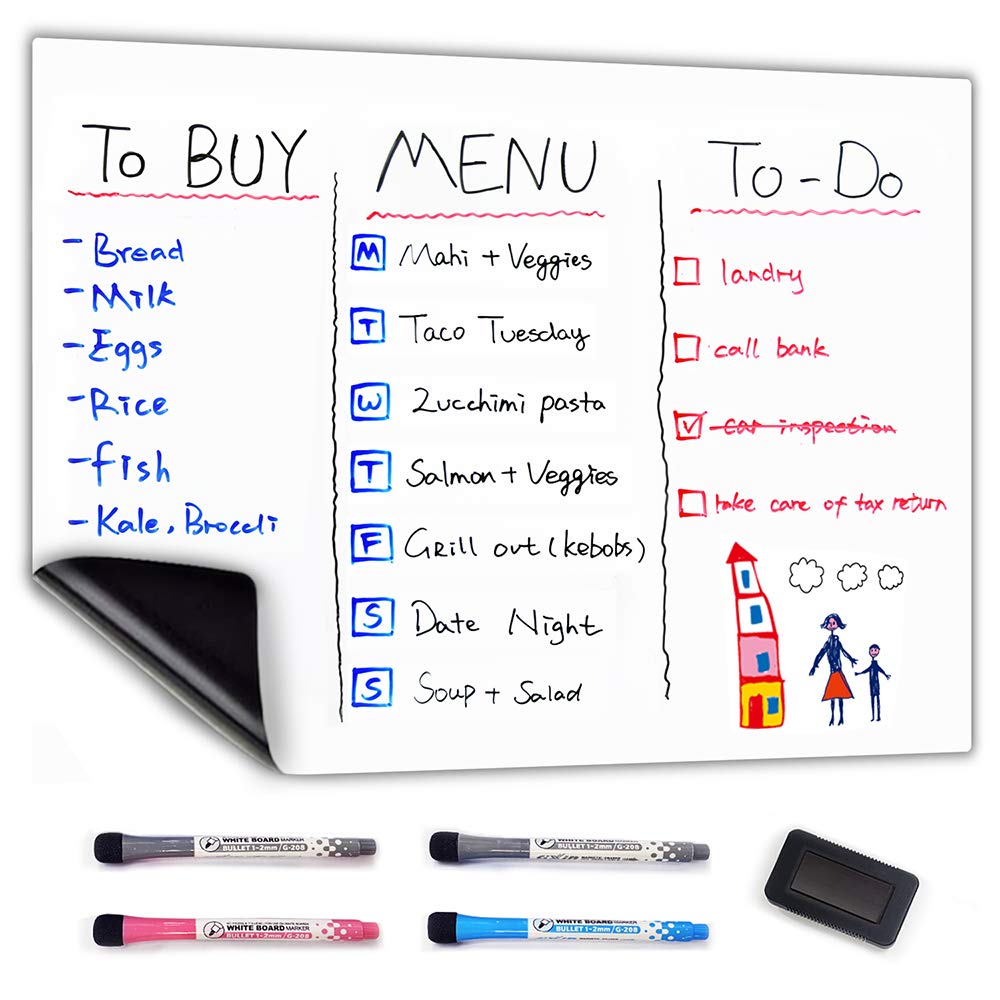 To BUY
- Bread
- Milk
- Eggs
- Rice
- fish
- Kale, Broccli
MENU
M Mahi + Veggies
T Taco Tuesday
W Zucchimi pasta
T Salmon + Veggies
F Grill out (kebobs)
S Date Night
S Soup + Salad
To-Do
landry
call bank
car inspection
take care of tax return
WHITE BOARD MARKER
BULLET 1~2mm/G-208
WHITE BOARD MARKER
BULLET 1~2mm/G-208
WHITE BOARD MARKER
BULLET 1~2mm/G-208
WHITE BOARD MARKER
BULLET 1~2mm/G-208